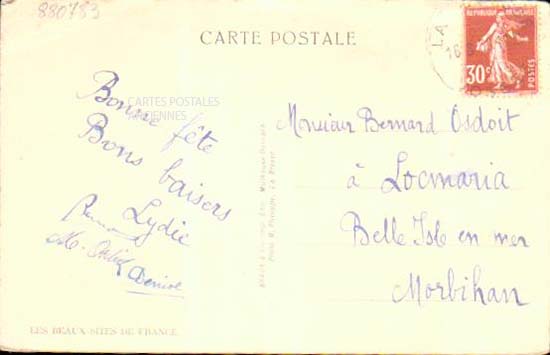 880783
CARTE POSTALE
LA
16
REPUBLIQUE FRANÇAISE
30c
POSTES
CARTES POSTALES
ANCIENNES
Bonne fête
Bons baisers
Lydie
Denise
Monsieur Bernard Osdoit
à Locmaria
Belle Isle en mer
Morbihan
LES BEAUX SITES DE FRANCE